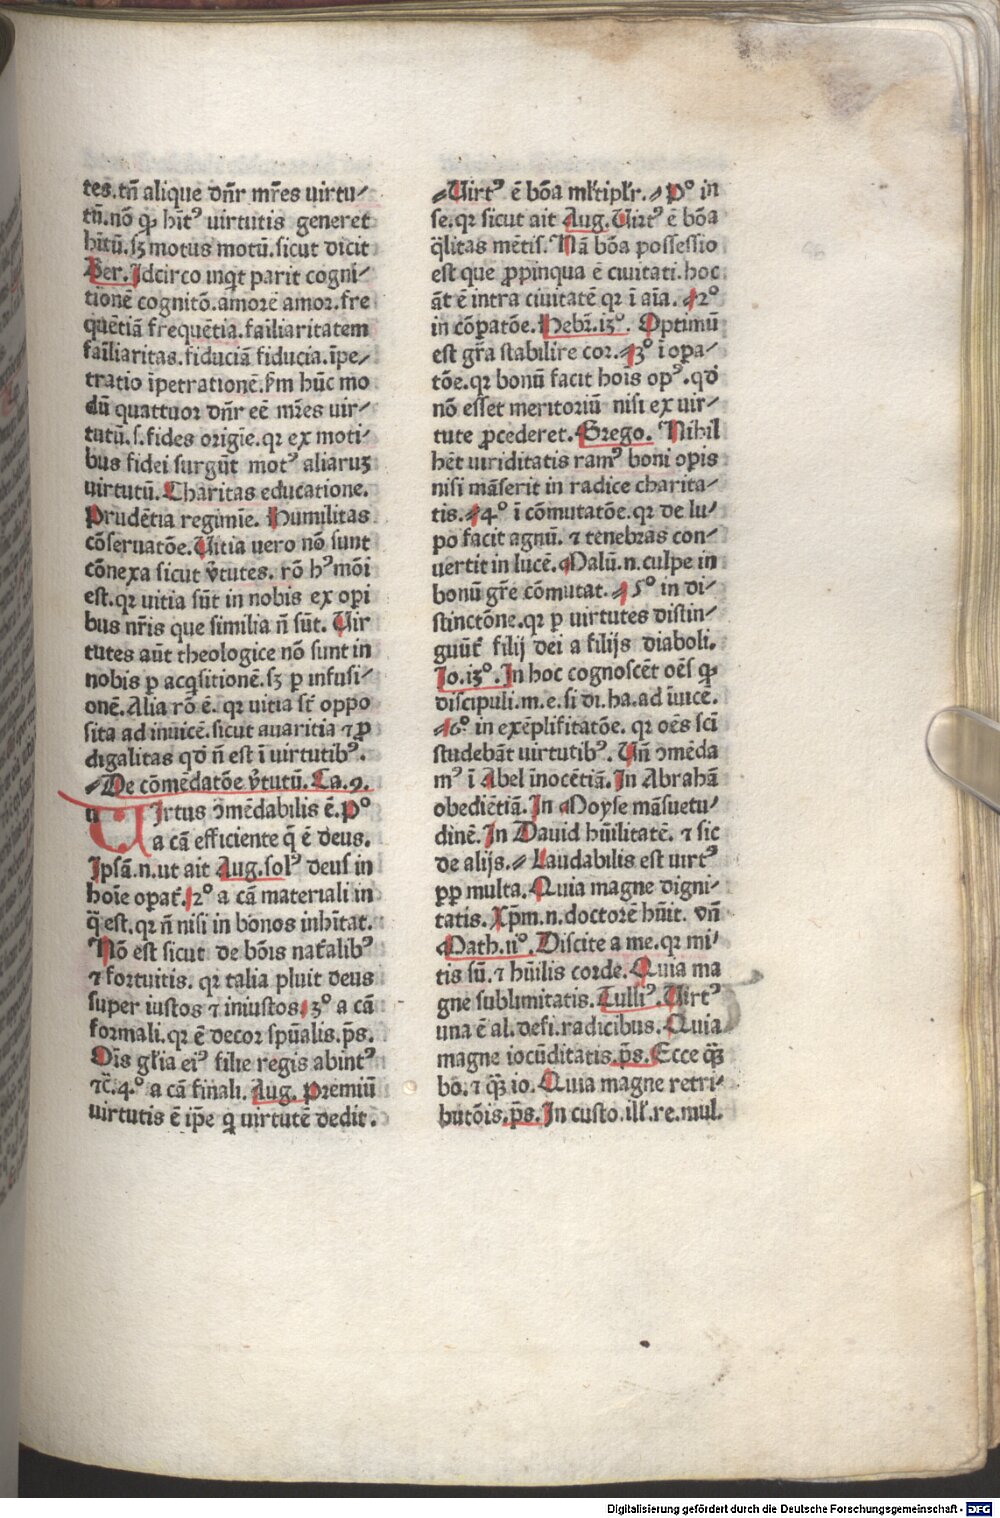 tes.tñ alique dñr mr̃es uirtu⸗
tũ.nõ ꝙ hĩtꝰ uirtutis generet
hĩtũ.sꝫ motus motũ.sicut dicit
Ber. Idcirco inqͥt parit cogni⸗
tionẽ cognitõ.amorẽ amor.fre
quẽtiã frequẽtia.failiaritatem
failiaritas.fiduciã fiducia.ĩpe⸗
tratio ĩpetrationẽ.ẜm hũc mo
dũ quattuor dñr eẽ mr̃es uir⸗
tutũ.s.fides origĩe.qꝛ ex moti⸗
bus fidei surgũt motꝰ aliaruꝫ
uirtutũ. Charitas educatione.
Prudẽtia regimĩe. Humilitas
cõseruatõe. Uitia uero nõ sunt
cõnexa sicut ṽtutes. rõ hꝰ mõi
est.qꝛ uitia sũt in nobis ex opi
bus nr̃is que similia ñ sũt. Uir
tutes aũt theologice nõ sunt in
nobis ꝑ acqͥsitionẽ.sꝫ ꝑ infusi⸗
onẽ. Alia rõ ẽ. qꝛ uitia st̃ oppo
sita ad inuicẽ.sicut auaritia ⁊ ꝓ
digalitas qd̃ ñ est ĩ uirtutibꝰ.
De cõmẽdatõe ṽtutũ. Ca.9.
UIrtus ↄmẽdabilis ẽ. Pº
a cã efficiente q̃ ẽ deus.
Ipsã.n.ut ait Aug.solꝰ deus in
hoĩe opat̃. 2º a cã materiali in
q̃ est.qꝛ ñ nisi in bonos inhĩtat.
Nõ est sicut de bõis nat̃alibꝰ
⁊ fortuitis. qꝛ talia pluit deus
super iustos ⁊ iniustos. 3º a cã
formali.qꝛ ẽ decor spũalis.p̃s.
Oĩs gl̃ia eiꝰ filie regis abintꝰ
⁊c̃.4º a cã finali. Aug. Premiũ
uirtutis ẽ ip̃e q uirtutẽ dedit.
Uirtꝰ ẽ bõa ml̃tipl̃r. Pº in
se.qꝛ sicut ait Aug. Uirtꝰ ẽ bõa
q̃litas mẽtis. Nã bõa possessio
est que ꝓpinqua ẽ ciuitati.hoc
ãt ẽ intra ciuitatẽ qꝛ ĩ aĩa. 2º
in cõꝑatõe. Hebr̃.13º. Optimũ
est gr̃a stabilire cor. 3º ĩ opa⸗
tõe.qꝛ bonũ facit hoĩs opꝰ.qd̃
nõ esset meritoriũ nisi ex uir⸗
tute ꝓcederet. Grego. Nihil
hẽt uiriditatis ramꝰ boni opis
nisi mãserit in radice charita⸗
tis. 4º ĩ cõmutatõe.qꝛ de lu⸗
po facit agnũ. ⁊ tenebras con⸗
uertit in lucẽ. Malũ.n.culpe in
bonũ gr̃e cõmutat. 5º in di⸗
stinctõne.qꝛ ꝑ uirtutes distin⸗
guũt̃ filij dei a filijs diaboli.
Io.13º. In hoc cognoscẽt oẽs ꝙ
discipuli.m.e.si di.ha.ad ĩuicẽ.
6º in exẽplifitatõe. qꝛ oẽs sc̃i
studebãt uirtutibꝰ. Uñ ↄmẽda
mꝰ ĩ Abel ĩnocẽtiã. In Abrahã
obediẽtiã. In Moyse mãsuetu⸗
dinẽ. In Dauid hũilitatẽ. ⁊ sic
de alijs. Laudabilis est uirtꝰ
ꝓp multa. Quia magne digni⸗
tatis. Xp̃m.n.doctorẽ hũit. vñ
Math.11º. Discite a me.qꝛ mi⸗
tis sũ.⁊ hũilis corde. Quia ma
gne sublimitatis. Tulliꝰ. Uirtꝰ
una ẽ al.defi.radicibus. Quia
magne iocũditatis.p̃s. Ecce qͣ̃
bõ.⁊ qͣ̃ io. Quia magne retri⸗
butõis.p̃s. In custo.ill̃.re.mul.
Digitalisierung gefördert durch die Deutsche Forschungsgemeinschaft - DFG